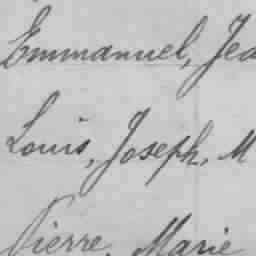 Emmanuel, Jea
Louis, Joseph, M
Pierre, Marie